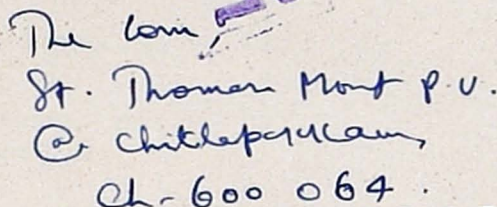 The Com,
St. Thomas Mount P.U.
@ Chitlapakkam,
Ch-600 064.